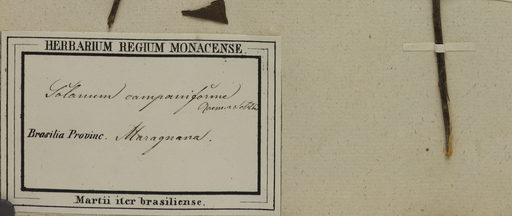 HERBARIUM REGIUM MONACENSE.
Solanum campaniforme
Roem. et Schult.
Brasilia Provinc. Maragnana.
Martii iter brasiliense.